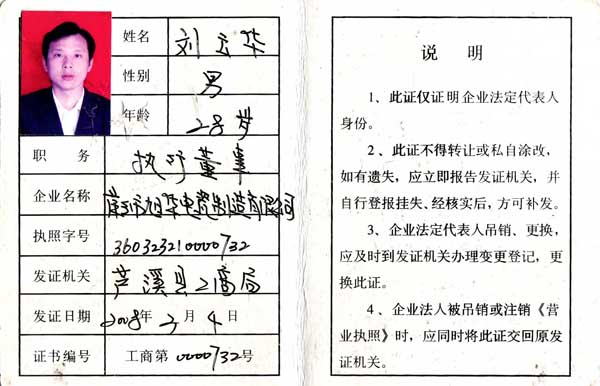 姓名 刘云华
性别 男
年龄 28岁
职务 执行董事
企业名称 萍乡市旭华电瓷制造有限公司
执照字号 360323210000732
发证机关 芦溪县工商局
发证日期 2008年3月4日
证书编号 工商第0000732号
说 明
1、此证仅证明企业法定代表人
身份。
2、此证不得转让或私自涂改,
如有遗失,应立即报告发证机关,并
自行登报挂失、经核实后,方可补发。
3、企业法定代表人吊销、更换,
应及时到发证机关办理变更登记,更
换此证。
4、企业法人被吊销或注销《营
业执照》时,应同时将此证交回原发
证机关。